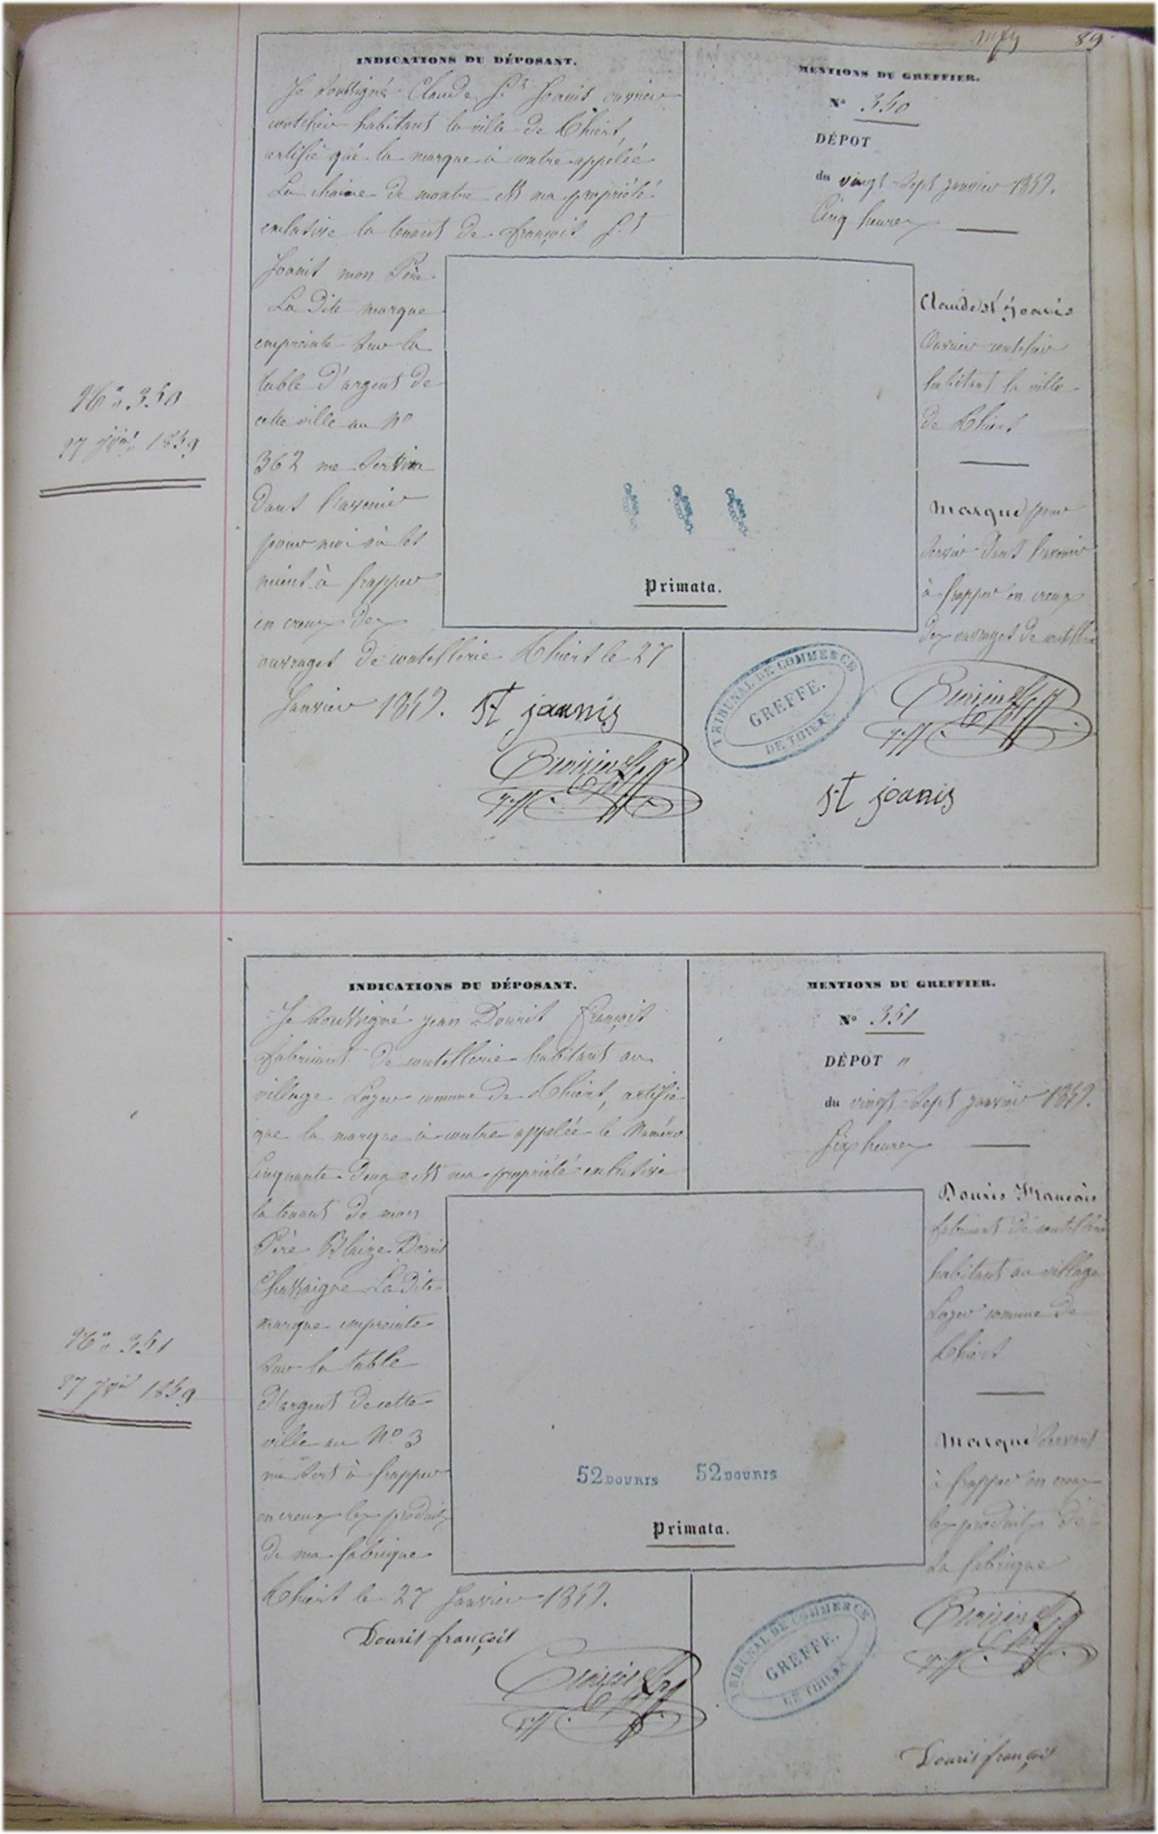 89
INDICATIONS DU DÉPOSANT.
Je soussigné Claude St Joanis ouvrier
coutelier habitant la ville de Thiers,
certifie que la marque ci contre appelée
La chaine de montre est ma propriété
exclusive la tenant de françois St
Joanis mon Père.
La dite marque
empreinte sur la
table d'argent de
cette ville au No
362 me servira
dans l'avenir
pour moi ou les
miens à frapper
en creux des
ouvrages de coutellerie Thiers le 27
Janvier 1859. St joanis
MENTIONS DU GREFFIER.
No 350
DÉPOT
du vingt-sept janvier 1859.
Cinq heures
Claude St Joanis
Ouvrier coutelier
habitant la ville
de Thiers
Marque pour
servir dans l'avenir
à frapper en creux
des ouvrages de coutellerie
Primata.
TRIBUNAL DE COMMERCE
GREFFE.
DE THIERS.
St joanis
No 350
27 jver 1859
INDICATIONS DU DÉPOSANT.
Je soussigné jean Douris françois
fabricant de coutellerie habitant au
village Lagar comune de Thiers, certifie
que la marque ci contre appelée le Numéro
Cinquante deux est ma propriété exclusive
la tenant de mon
Père Blaize Douris
Chassaigne La dite
marque empreinte
sur la table
d'argent de cette
ville au No 3
me sert à frapper
en creux les produits
de ma fabrique
Thiers le 27 Janvier 1859.
Douris françois
MENTIONS DU GREFFIER.
No 351
DÉPOT
du vingt-sept janvier 1859.
Six heures
Douris François
fabricant de coutellerie
habitant au village
Lagar comune de
Thiers
Marque servant
à frapper en creux
les produits de
sa fabrique
52 DOURIS 52 DOURIS
Primata.
TRIBUNAL DE COMMERCE
GREFFE.
DE THIERS.
Douris françois
No 351
27 jver 1859